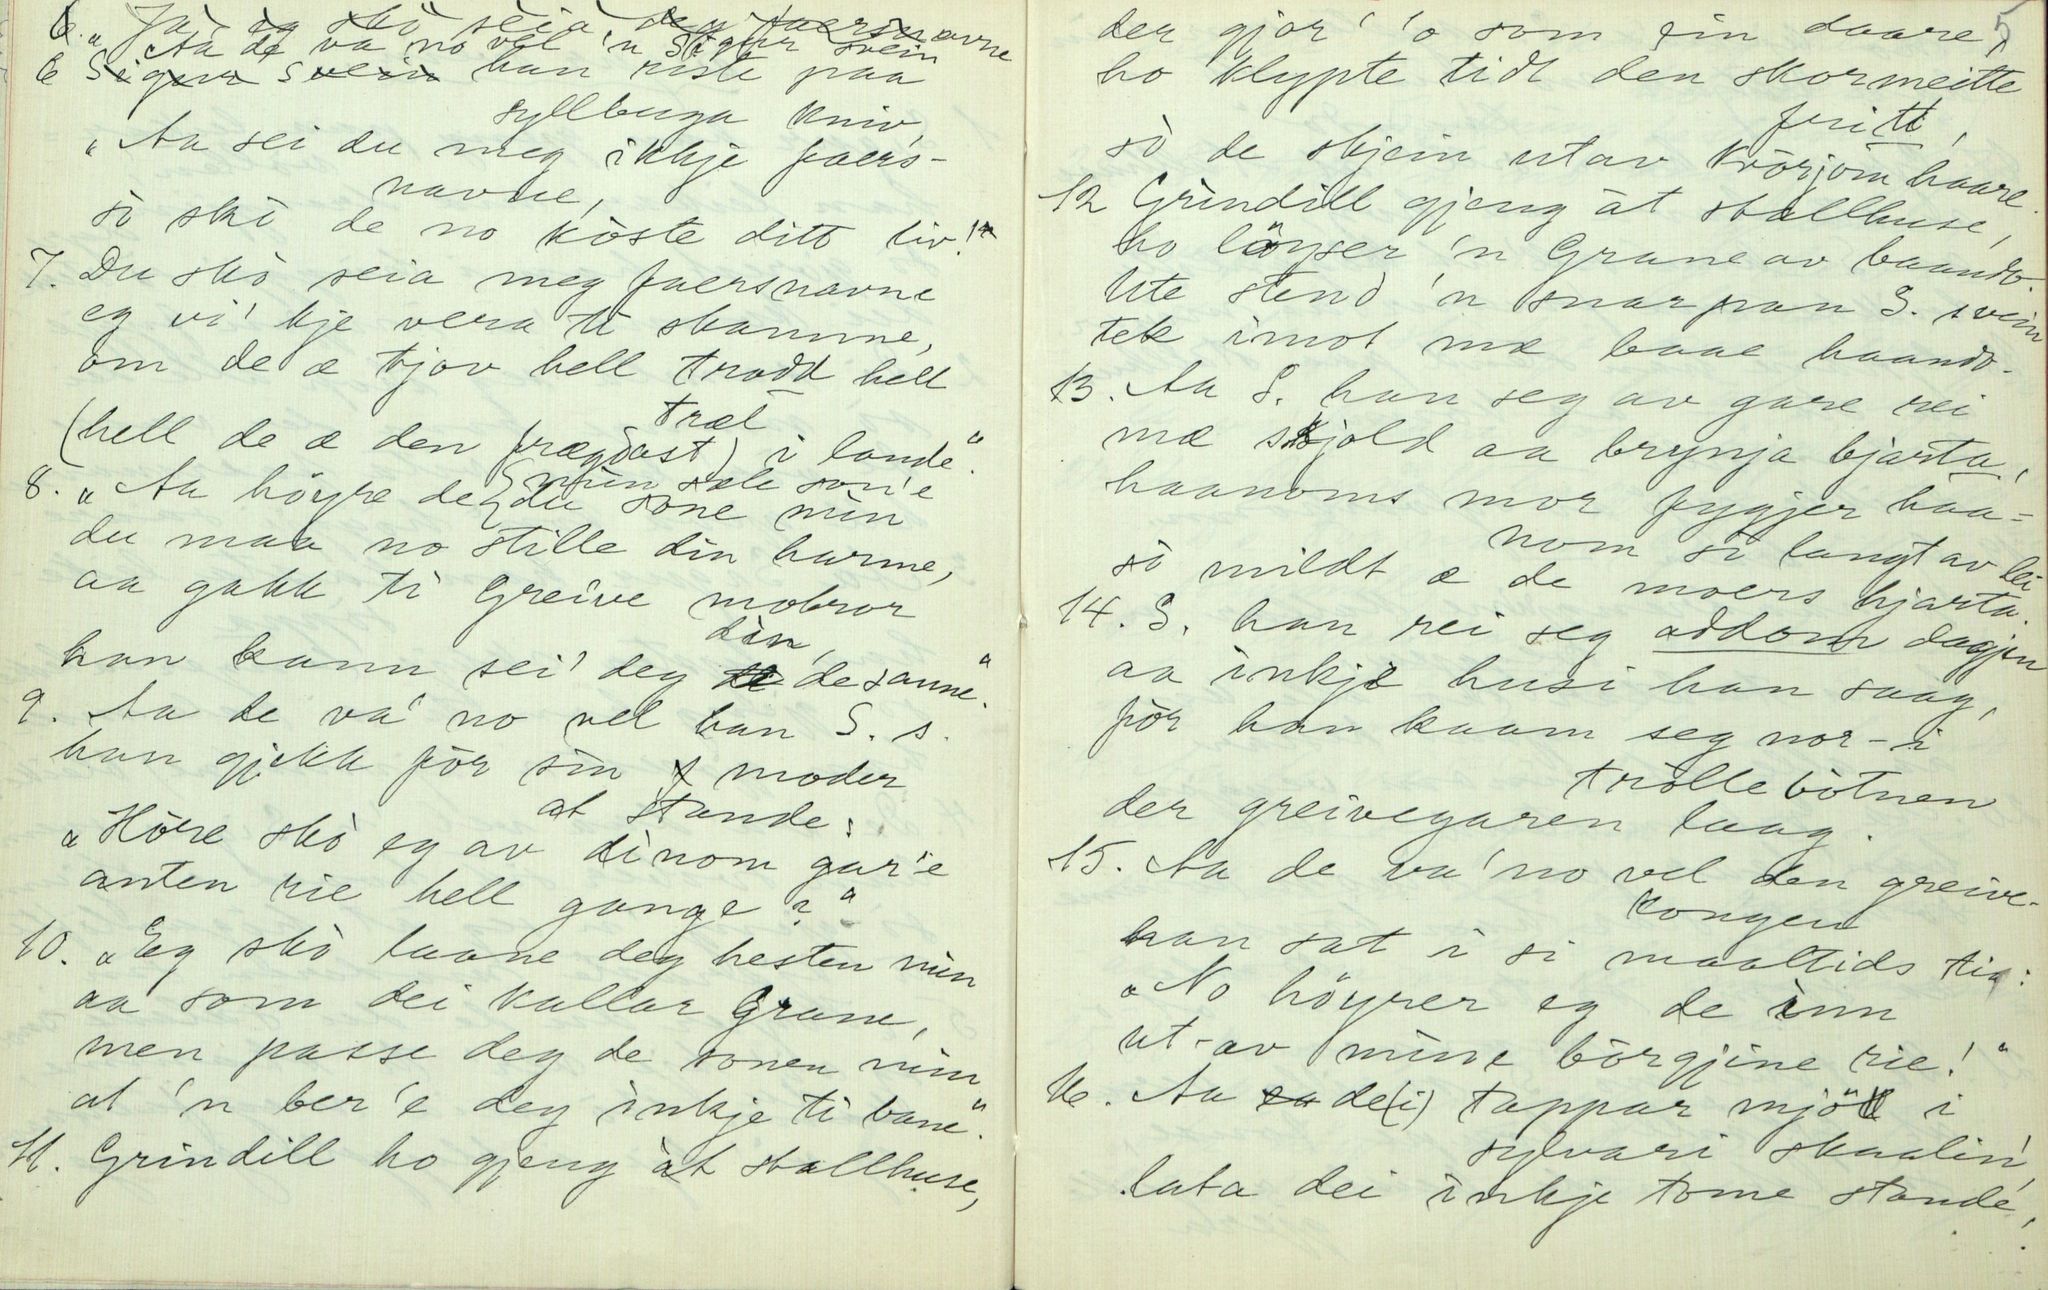 6. „Ja eg skò seia deg faersnavne
Aa de va no vel 'n Sigur svein
6 Sigur Svein han riste paa
syllbuga kniv,
„Aa sei du meg ikkje faers-
navne,
sò skò de no kòste ditt liv!"
7. Du skò seia meg faersnavne
eg vi' kje vera ti skamme,
om de æ tjov hell trodd hell
træl
(hell de æ den frægdast) i lande."
min sæle son'e
8. „Aa höyre de du sone min
du maa no stille din harme,
aa gakk ti Greive mobror
din,
han kann sei' deg de sanne."
9. Aa de va' no vel han S. s.
han gjekk fòr sin moder
at stande:
„Höre skò eg av dinom gar'e
anten rie hell gange?"
10. „Eg skò laane deg hesten min
aa som dei kallar Grane,
men passe deg de sonen min
at 'n ber'e deg inkje ti bane."
11. Grindill ho gjeng àt stallhuse,
5
der gjor' 'o som ein daare,
ho klypte tidt den skormeitte
feitt,
sò de skjein utav kvörjom haare.
12 Grindill gjeng àt stallhuse,
ho löyser 'n Grane av baando.
Ute stend 'n snarpan S. svein
tek imot mæ baae haando.
13. Aa S. han seg av gare rei
mæ skjold aa brynja bjarta,
haanoms mor fygjer haa-
nom sò langt av lei
sò mildt æ de moers hjarta.
14. S. han rei seg addom dagjen
aa inkje husi han saag,
fòr han kaam seg nor-i
tròllebòtnen
der greivegaren laag.
15. Aa de va' no vel den greive-
kongen
han sat i si maaltids tia:
„No höyrer eg de inn
ut-av mine bòrgjine rie!"
16. Aa de(i) tappar mjö i
sylvari skaalin',
lata dei inkje tome stande,